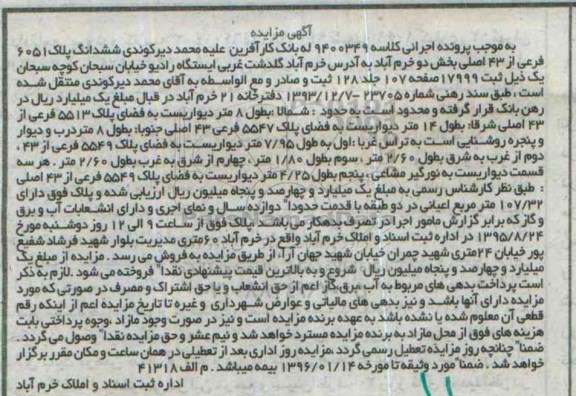 آگهی مزایده
به موجب پرونده اجرائی کلاسه ۹۴۰۰۳۴۹ له بانک کارآفرین علیه محمد دیرکوندی ششدانگ پلاک ۶۰۵۱
فرعی از ۴۳ اصلی بخش دو خرم آباد به آدرس خرم آباد گلدشت غربی ایستگاه رادیو خیابان سبحان کوچه سبحان
یک ذیل ثبت ۱۷۹۹۹ صفحه ۱۰۷ جلد ۱۲۸ ثبت و صادر و مع الواسطه به آقای محمد دیرکوندی منتقل شده
است ، طبق سند رهنی شماره ۲۳۷۰۵ – ۱۳۹۳/۱۲/۷ دفترخانه ۲۱ خرم آباد در قبال مبلغ یک میلیارد ریال در
رهن بانک قرار گرفته و محدود است به حدود : شمالا :بطول ۸ متر دیواریست به فضای پلاک ۵۵۱۳ فرعی از
۴۳ اصلی شرقا: بطول ۱۴ متر دیواریست به فضای پلاک ۵۵۴۷ فرعی ۴۳ اصلی جنوبا: بطول ۸ متر درب و دیوار
و پنجره و روشنایی است به تراس غربا : اول به طول ۷/۹۵ متر دیواریست به فضای پلاک ۵۵۴۹ فرعی از ۴۳ ،
دوم از غرب به شرق بطول ۲/۶۰ متر ، سوم بطول ۱/۸۰ متر ، چهارم از شرق به غرب بطول ۲/۶۰ متر . هر سه
قسمت دیواریست به نورگیر مشاعی ، پنجم بطول ۴/۲۵ متر دیواریست به فضای پلاک ۵۵۴۹ فرعی از ۴۳ اصلی
: طبق نظر کارشناس رسمی به مبلغ یک میلیارد و چهارصد و پنجاه میلیون ریال ارزیابی شده و پلاک فوق دارای
۱۰۷/۳۲ متر مربع اعیانی در دو طبقه با قدمت حدودا" دوازده سال و نمای اجری و دارای انشعابات آب و برق
و گاز که برابر گزارش مامور اجرا در تصرف بدهکار می باشد. پلاک فوق از ساعت ۹ الی ۱۲ روز دوشنبه مورخ
۱۳۹۵/۸/۲۴ در اداره ثبت اسناد و املاک خرم آباد واقع در خرم آباد ۶۰متری مدیریت بلوار شهید فرشاد شفیع
پور خیابان ۲۴متری شهید چمران خیابان شهید جهان آرا، از طریق مزایده به فروش می رسد . مزایده از مبلغ یک
میلیارد و چهارصد و پنجاه میلیون ریال شروع و به بالاترین قیمت پیشنهادی نقدا" فروخته می شود .لازم به ذکر
است پرداخت بدهی های مربوط به آب ،برق،گاز اعم از حق انشعاب و یا حق اشتراک و مصرف در صورتی که مورد
مزایده دارای آنها باشد و نیز بدهی های مالیاتی و عوارض شهرداری و غیره تا تاریخ مزایده اعم از اینکه رقم
قطعی آن معلوم شده یا نشده باشد به عهده برنده مزایده است و نیز در صورت وجود مازاد ،وجوه پرداختی بابت
هزینه های فوق از محل مازاد به برنده مزایده مسترد خواهد شد و نیم عشر و حق مزایده نقدا" وصول می گردد .
ضمنا" چنانچه روز مزایده تعطیل رسمی گردد ،مزایده روز اداری بعد از تعطیلی در همان ساعت و مکان مقرر برگزار
خواهد شد . ضمنا" مورد وثیقه تا مورخه ۱۳۹۶/۰۱/۱۴ بیمه میباشد . م الف ۴۱۳۱۸
اداره ثبت اسناد و املاک خرم آباد